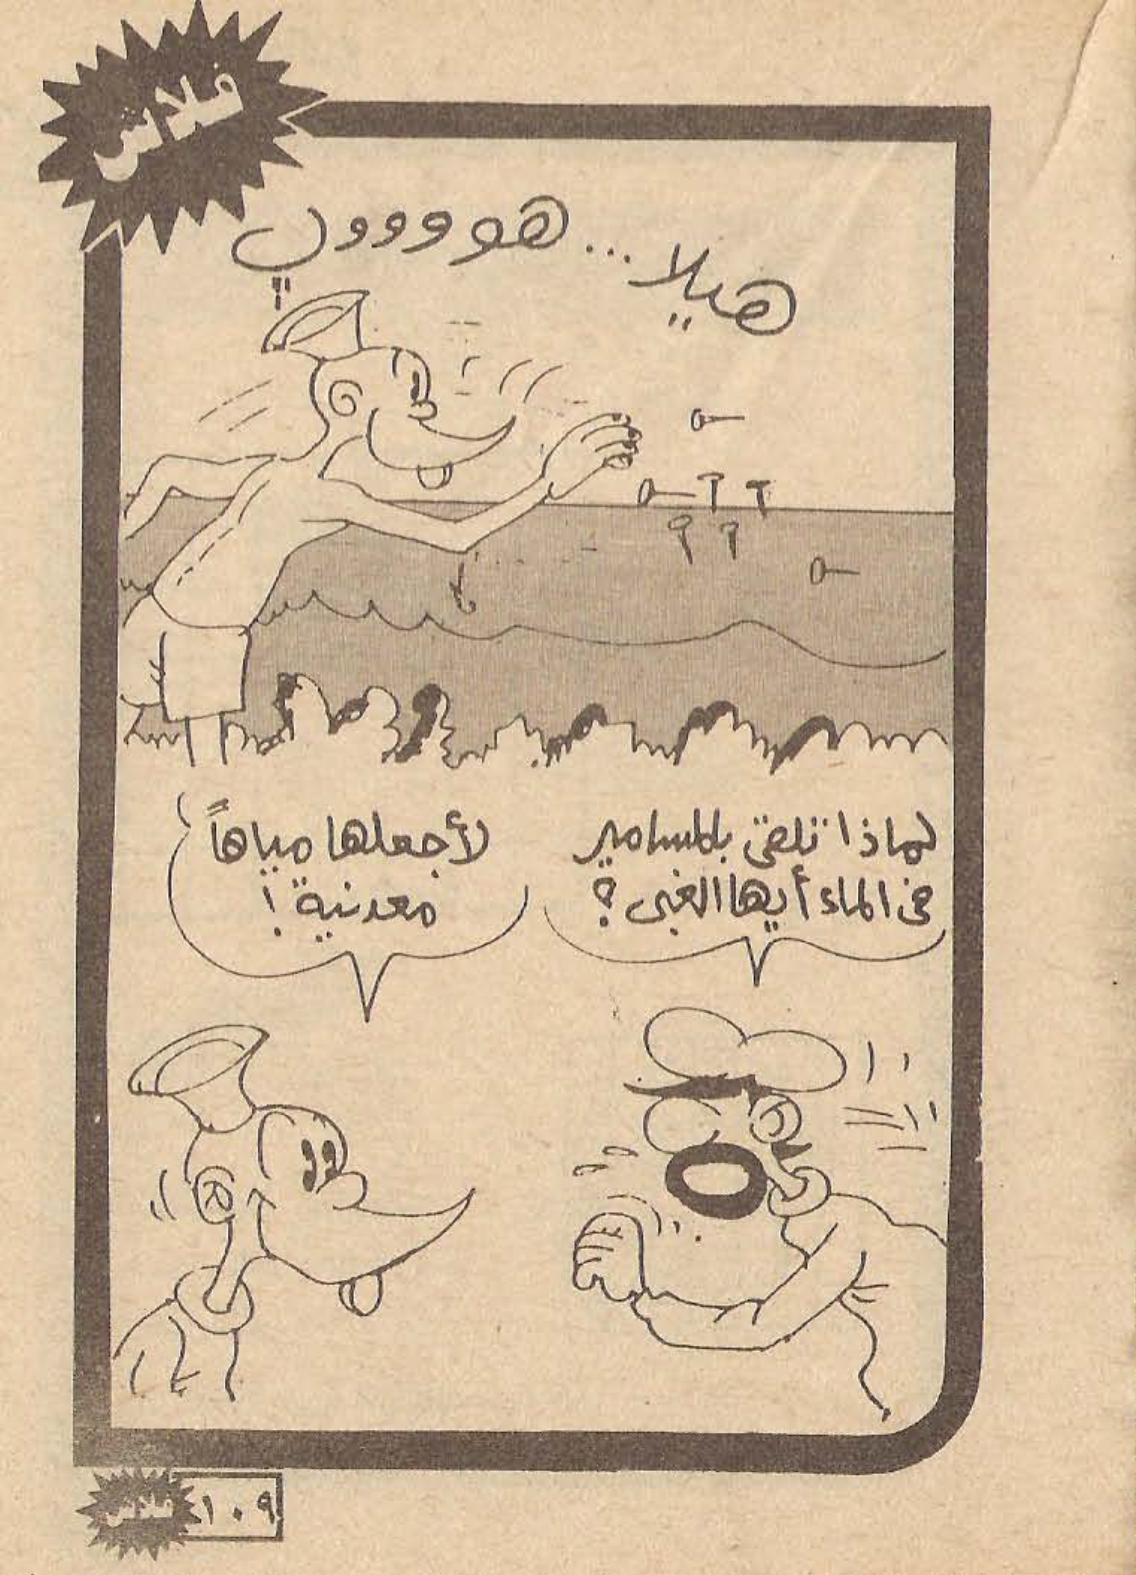 فلاش
هيلا... هووووب
لماذا تلقى بالمسامير
فى الماء أيها الغبى؟
لأجعلها مياهاً
معدنية!
فلاش ١٠٩